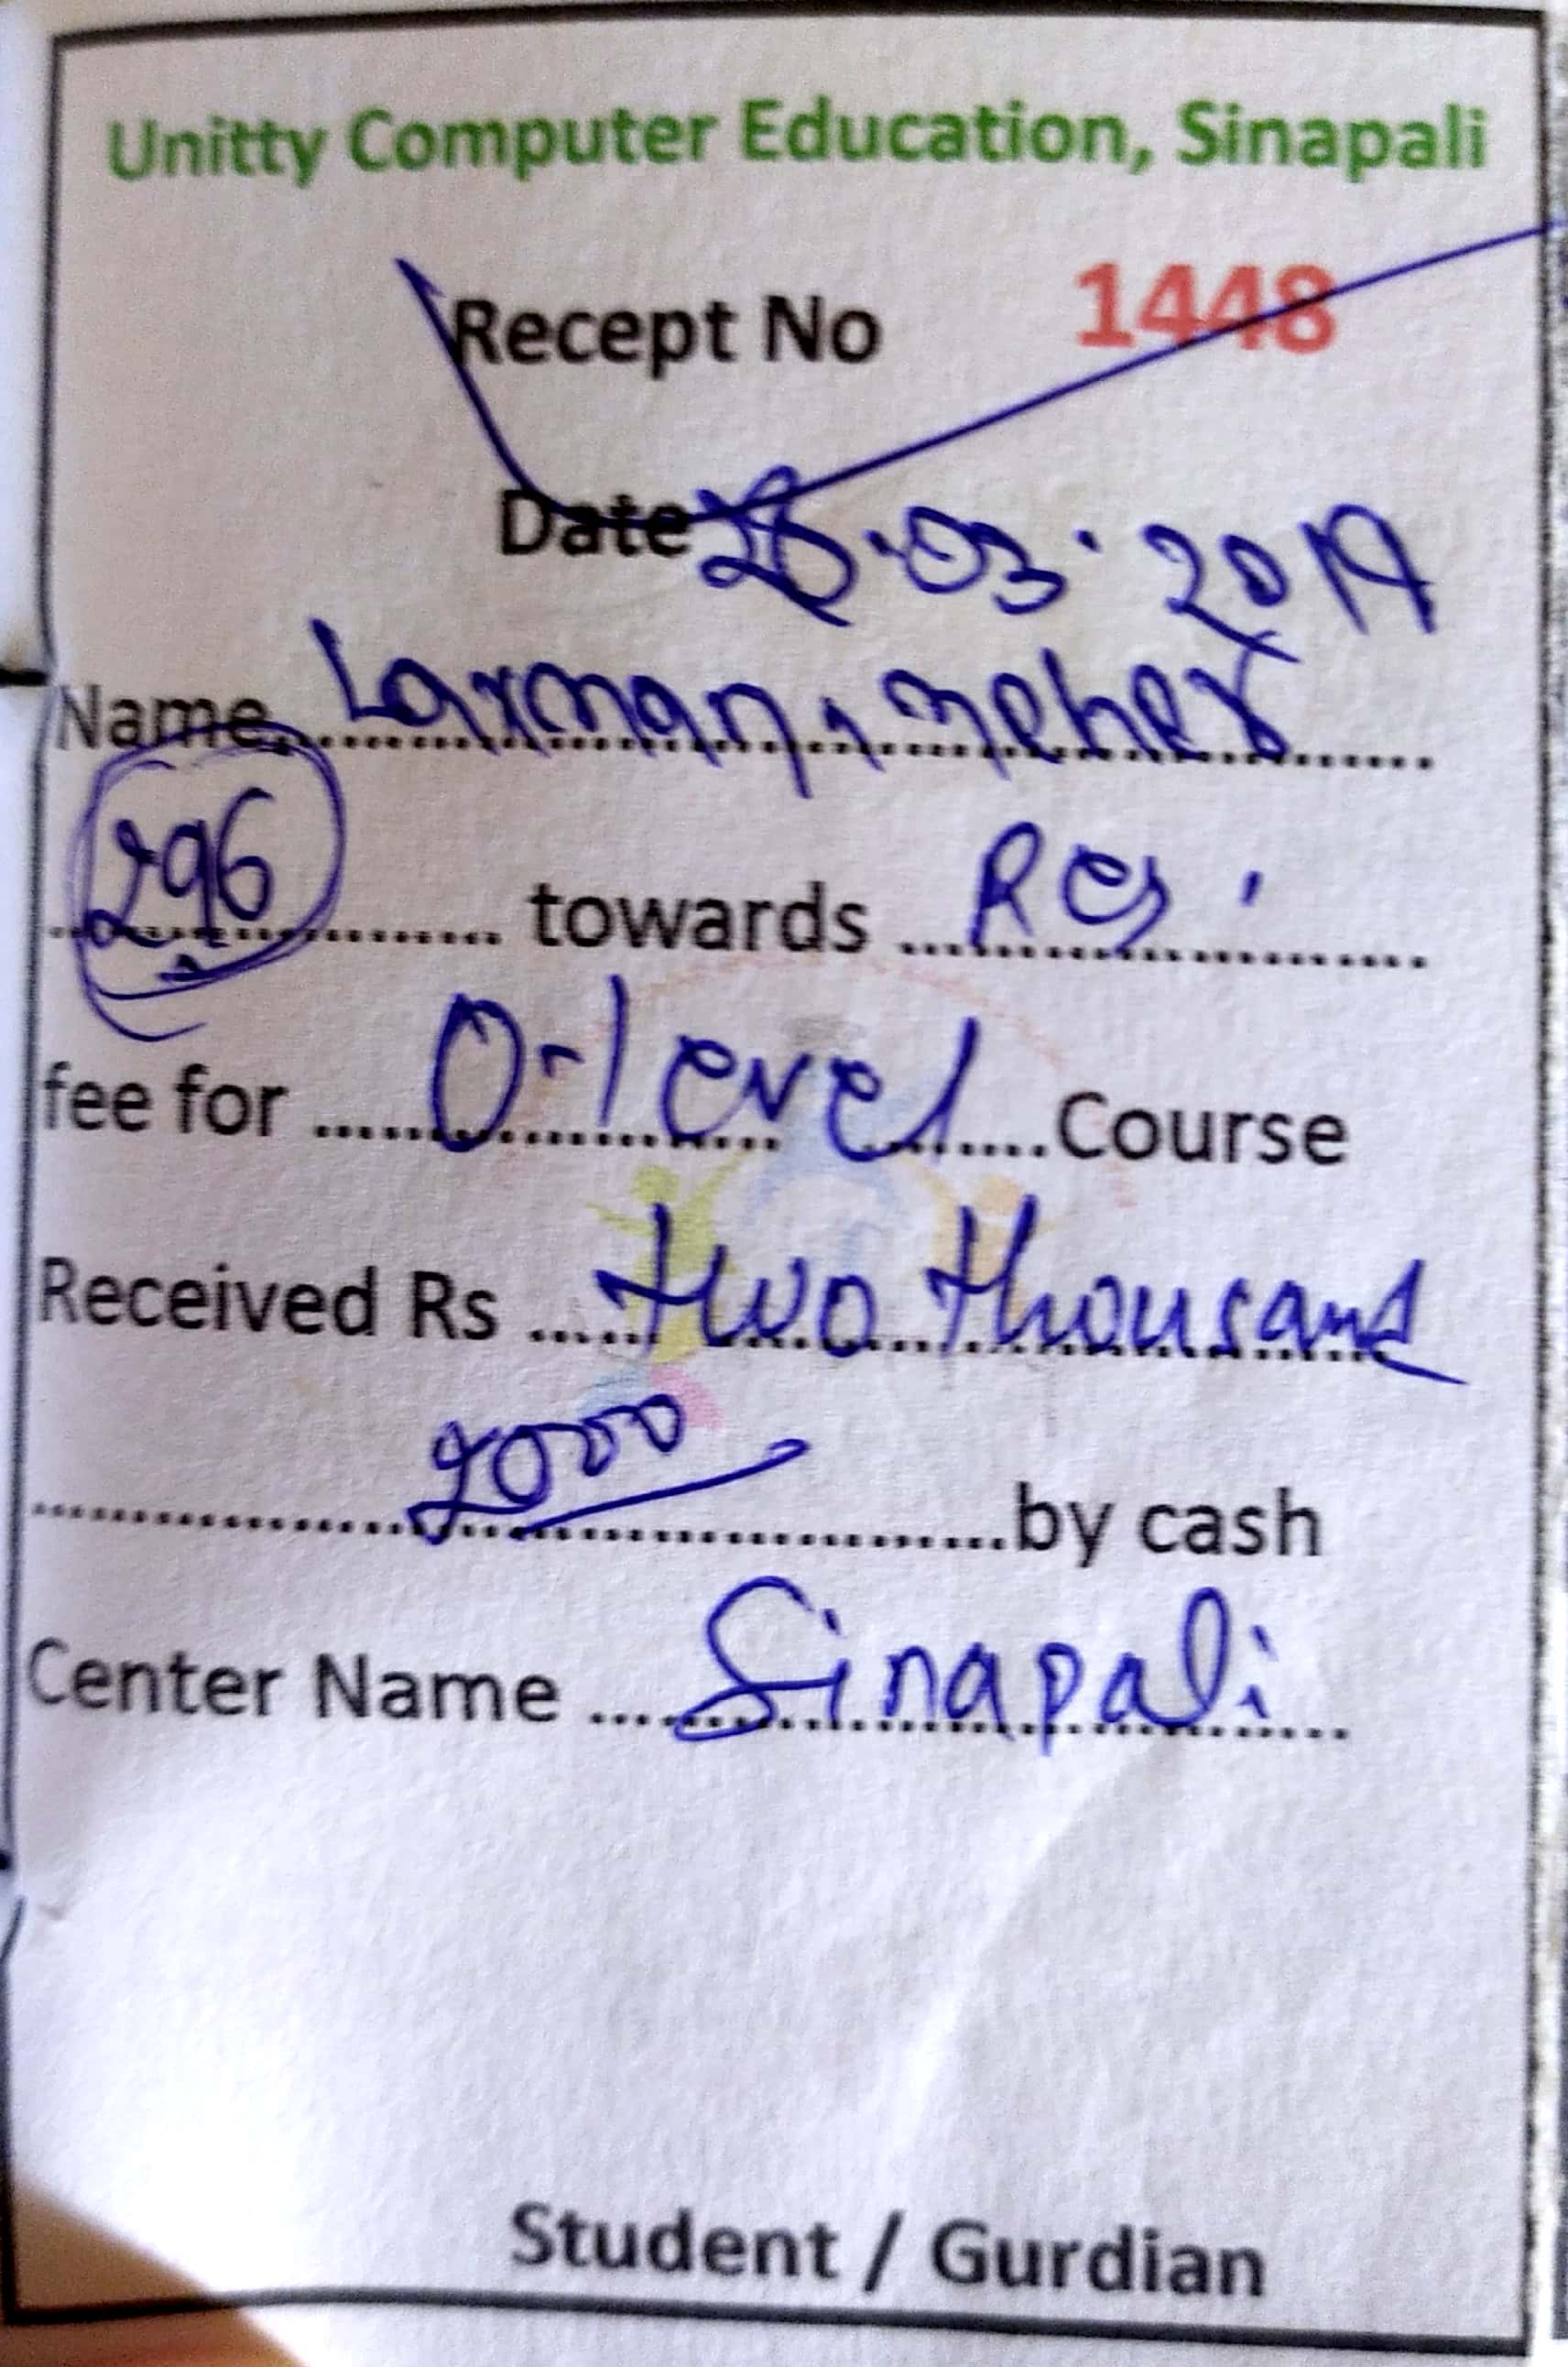 Unitty Computer Education, Sinapali
Recept No 1448
Date .03.2019
Name Laxman, meher
296 towards Reg.
fee for O-level Course
Received Rs two thousand
2000 by cash
Center Name Sinapali
Student / Gurdian